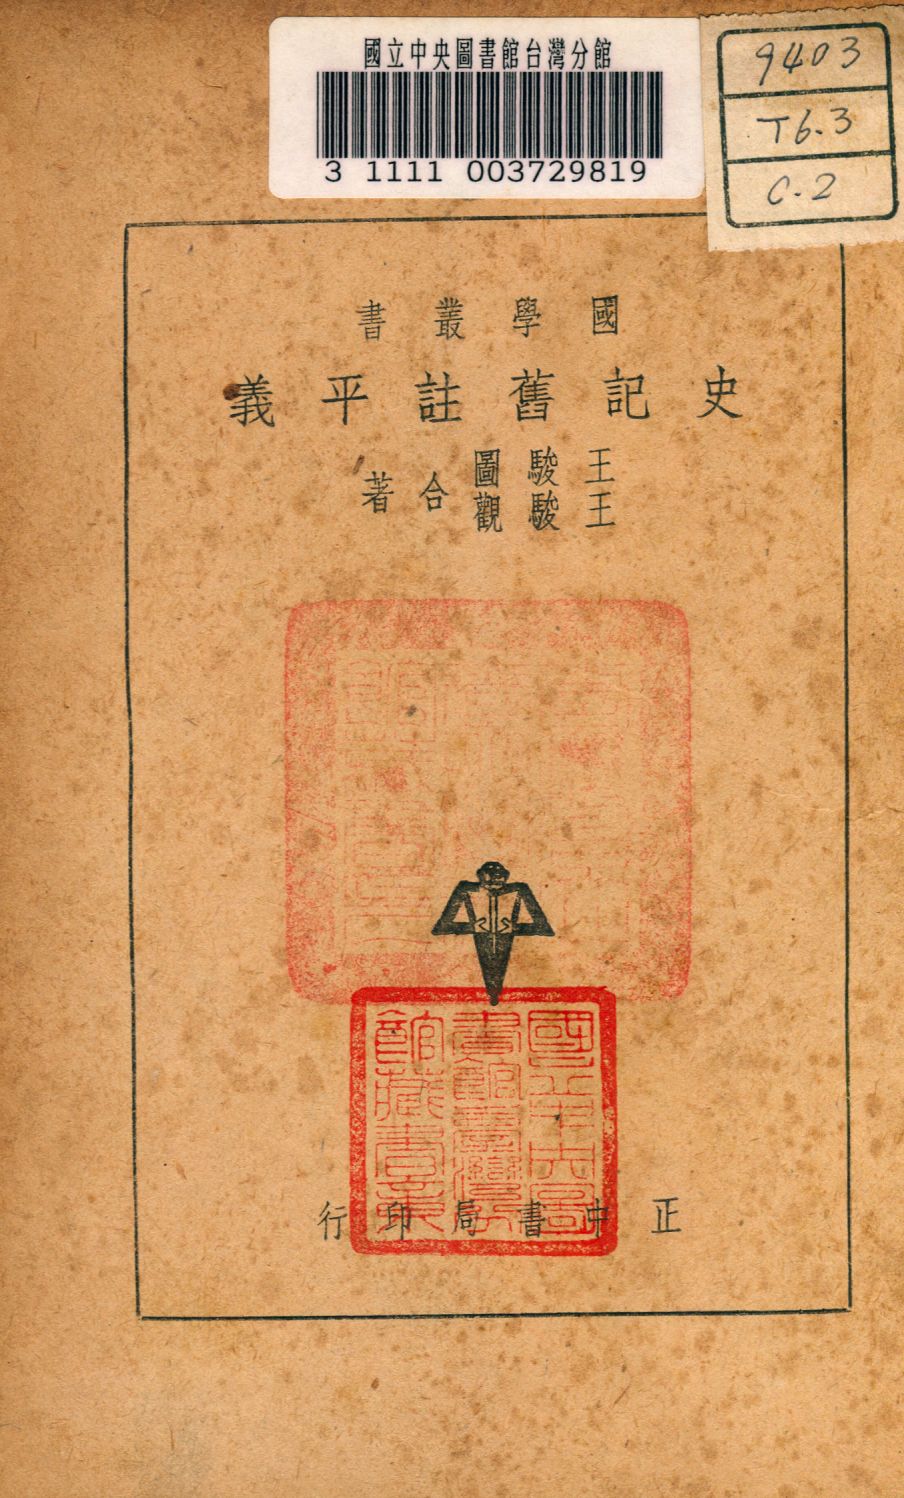 國立中央圖書館台灣分館
3 1111 003729819
9403
T6.3
C.2
國學叢書
史記舊註平義
王駿圖
王駿觀
合著
國立中央圖
書館臺灣分
館藏書章
正中書局印行